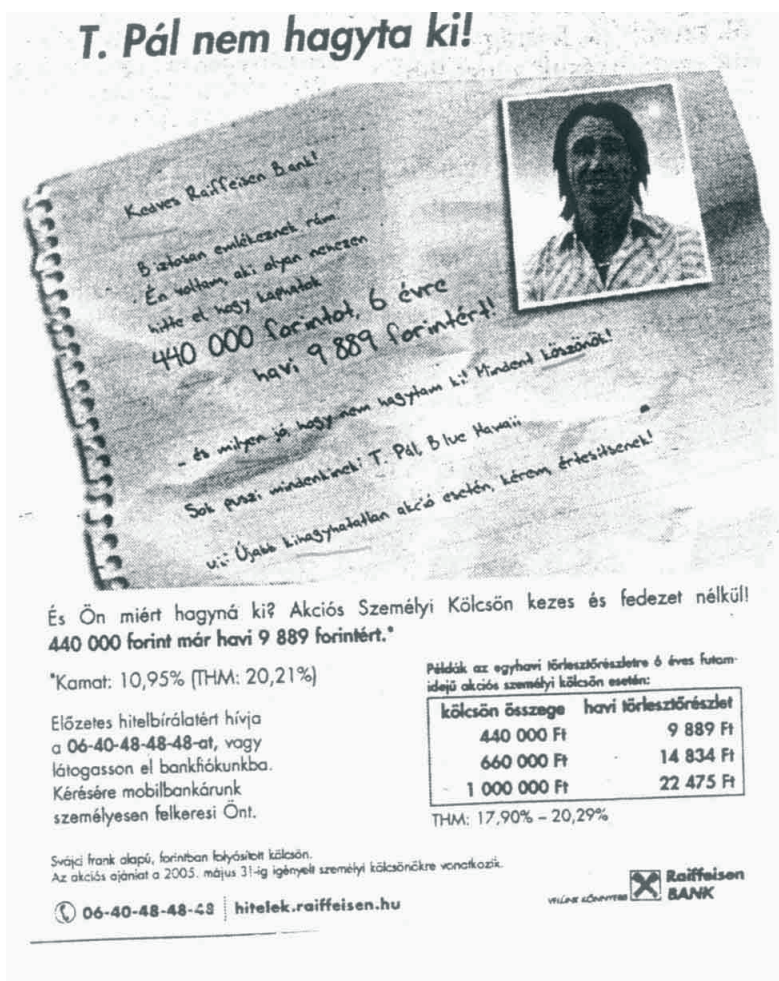 T. Pál nem hagyta ki!
Kedves Raiffeisen Bank!
Biztosan emlékeznek rám.
Én voltam, aki olyan nehezen
hitte el, hogy kaphatok
440 000 forintot, 6 évre
havi 9 889 forintért!
- és milyen jó, hogy nem hagytam ki! Mindent köszönök!
Sok puszi mindenkinek: T. Pál, Blue Hawaii
u.i.: Újabb kihagyhatatlan akció esetén, kérem, értesítsenek!
És Ön miért hagyná ki? Akciós Személyi Kölcsön kezes és fedezet nélkül!
440 000 forint már havi 9 889 forintért.*
*Kamat: 10,95% (THM: 20,21%)
Előzetes hitelbírálatért hívja
a 06-40-48-48-48-at, vagy
látogasson el bankfiókunkba.
Kérésére mobilbankárunk
személyesen felkeresi Önt.
Példák az egyhavi törlesztőrészletre 6 éves futam-
idejű akciós személyi kölcsön esetén:
kölcsön összege havi törlesztőrészlet
440 000 Ft 9 889 Ft
660 000 Ft 14 834 Ft
1 000 000 Ft 22 475 Ft
THM: 17,90% – 20,29%
Svájci frank alapú, forintban folyósított kölcsön.
Az akciós ajánlat a 2005. május 31-ig igényelt személyi kölcsönökre vonatkozik.
06-40-48-48-48 hitelek.raiffeisen.hu
VELÜNK KÖNNYEBB Raiffeisen
BANK